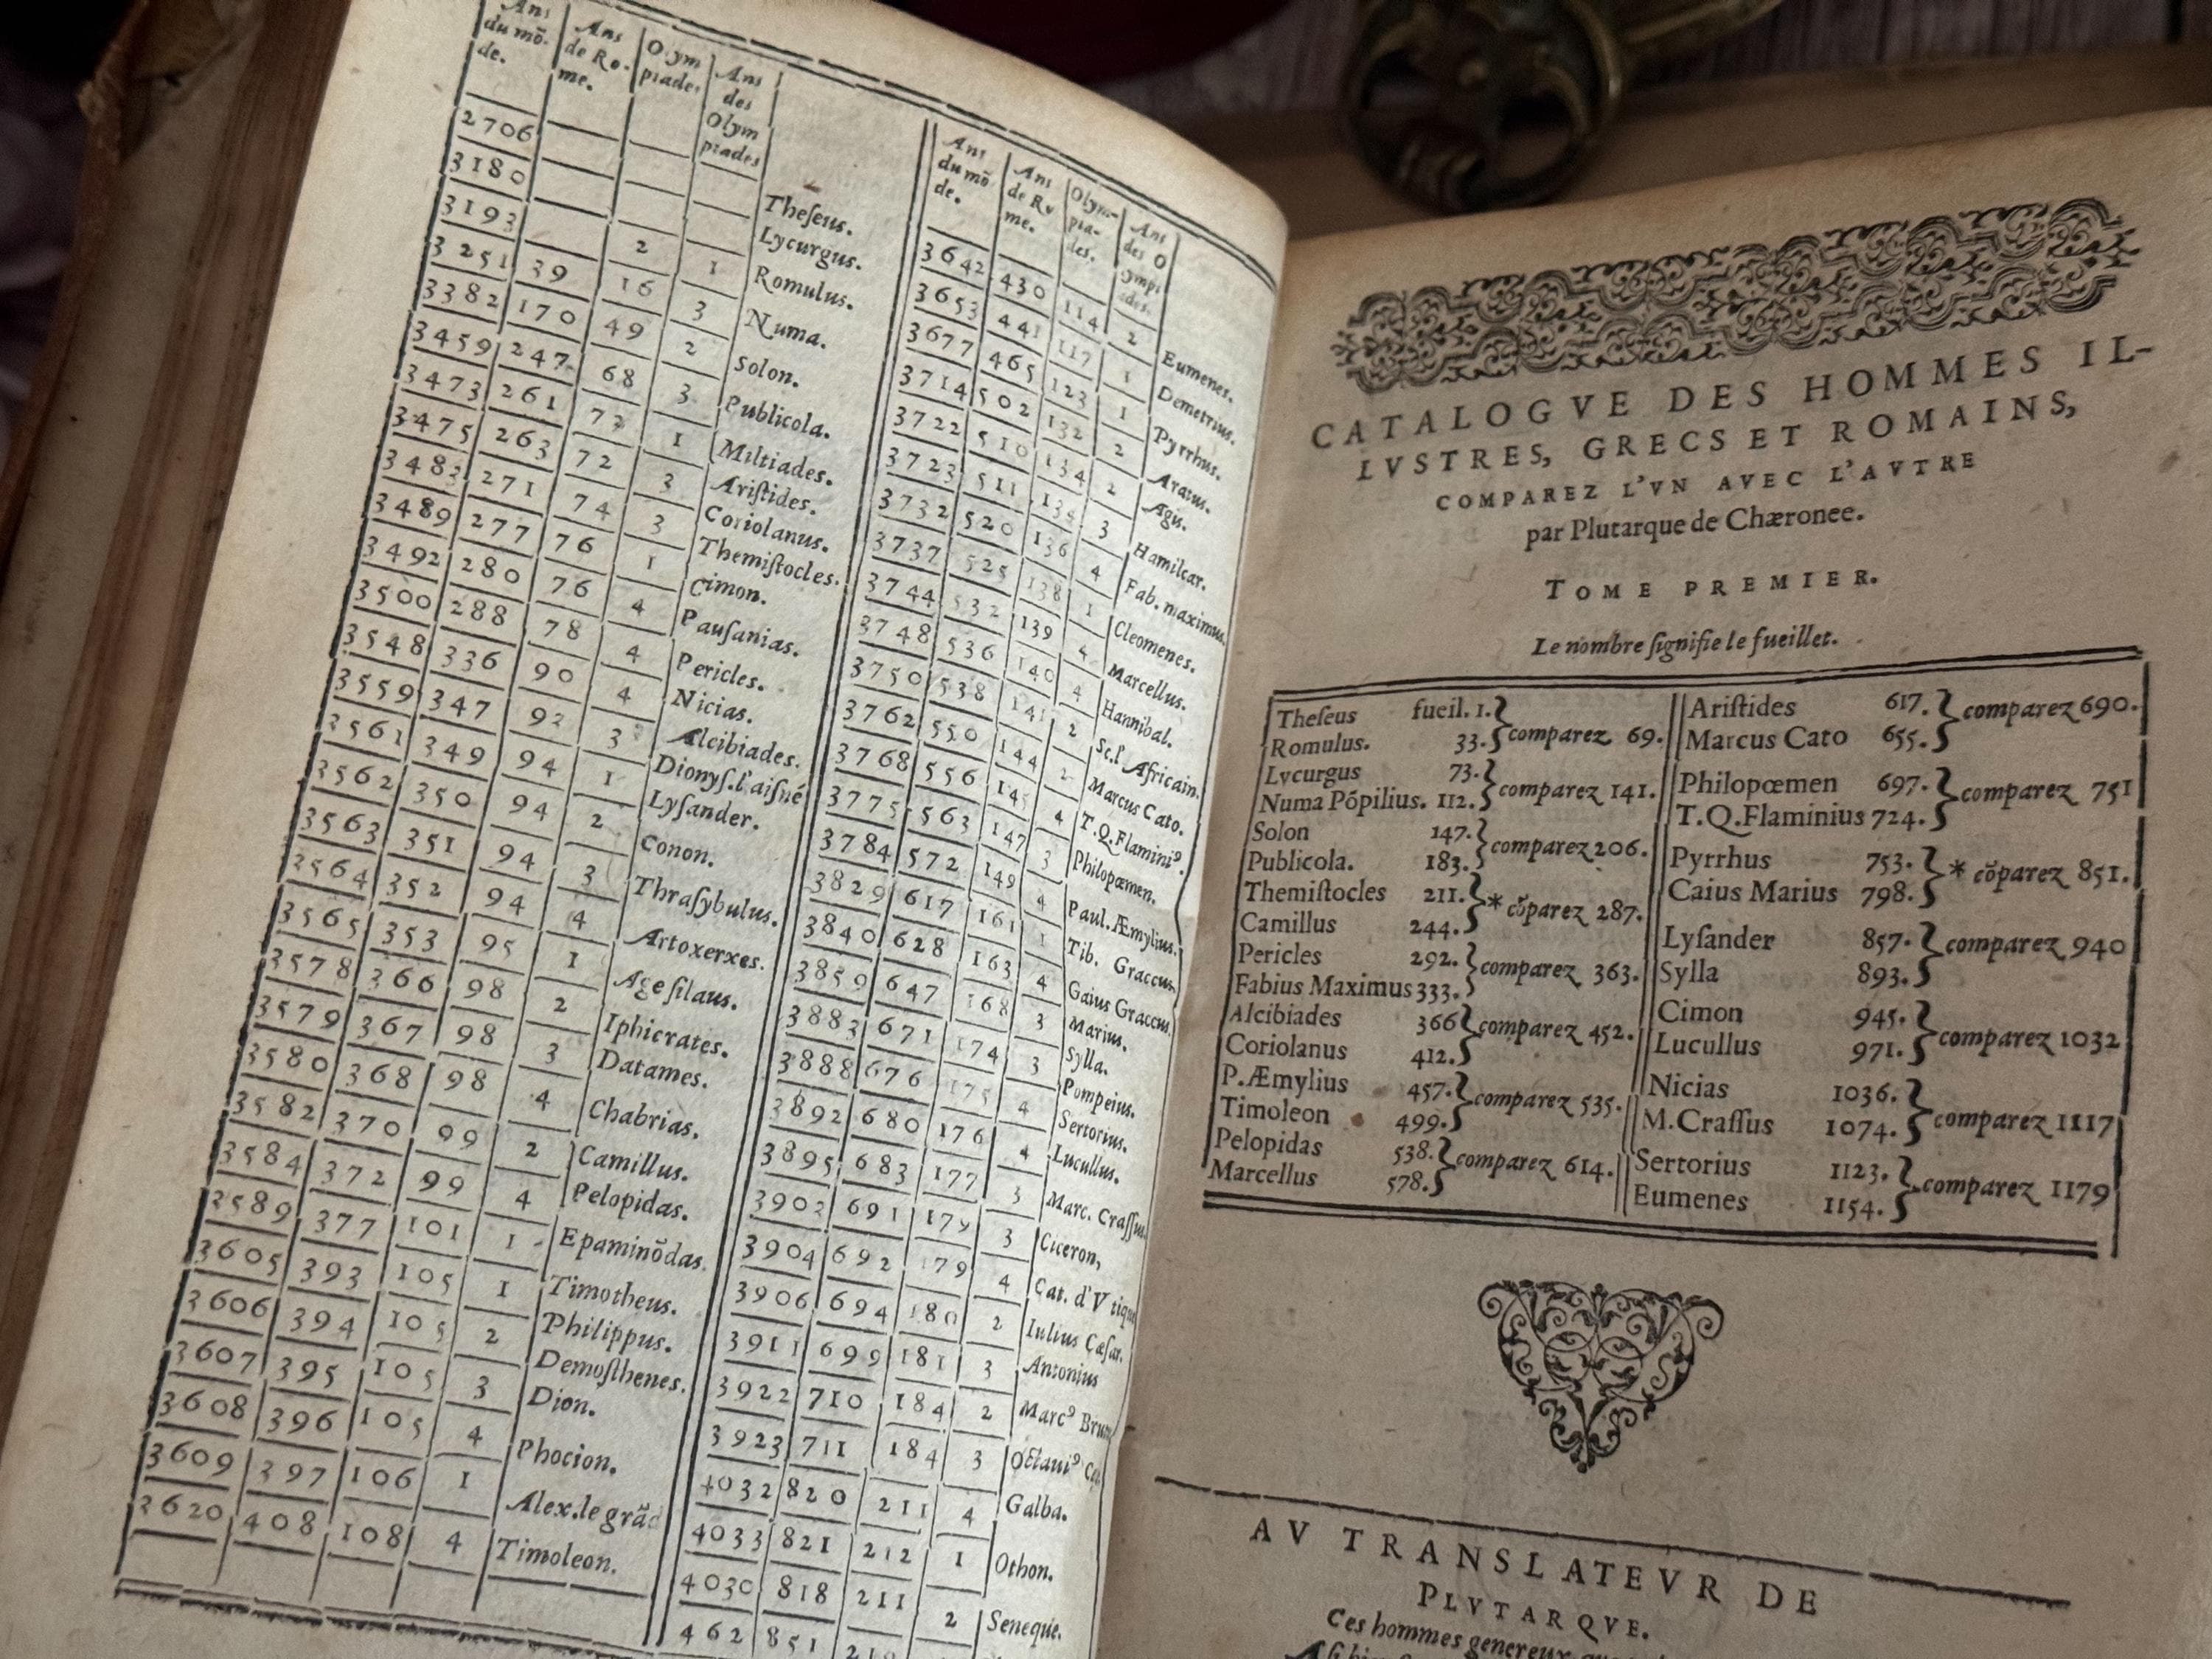 Ans du mõ- de. Ans de Ro- me. Olym piades Ans des Olym piades
2706 Theſeus.
3180 Lycurgus.
3193 2 1 Romulus.
3251 39 16 3 Numa.
3382 170 49 2 Solon.
3459 247 68 3 Publicola.
3473 261 72 1 Miltiades.
3475 263 72 3 Ariſtides.
3483 271 74 3 Coriolanus.
3489 277 76 1 Themiſtocles.
Cimon.
3492 280 76 4 Pauſanias.
3500 288 78 4 Pericles.
3548 336 90 4 Nicias.
3559 347 92 3 Alcibiades.
Dionyſ.l'aiſné
3561 349 94 1 Lyſander.
3562 350 94 2 Conon.
3563 351 94 3 Thraſybulus.
3564 352 94 4 Artoxerxes.
3565 353 95 1 Ageſilaus.
3578 366 98 2 Iphicrates.
3579 367 98 3 Datames.
3580 368 98 4 Chabrias.
3582 370 99 2 Camillus.
3584 372 99 4 Pelopidas.
3589 377 101 1 Epaminõdas
3605 393 105 1 Timotheus.
3606 394 105 2 Philippus.
Demoſthenes.
3607 395 105 3 Dion.
3608 396 105 4 Phocion.
3609 397 106 1 Alex.le grãd
3620 408 108 4 Timoleon.
Ans du mõ de. Ans de Ro me. Olym- pia- des. Ans des O lympi ades.
3642 430 114 2 Eumenes.
3653 441 117 1 Demetrius.
3677 465 123 1 Pyrrhus.
3714 502 132 2 Aratus.
3722 510 134 2 Agis.
3723 511 134 3 Hamilcar.
3732 520 136 4 Fab. maximus.
3737 525 138 1 Cleomenes.
3744 532 139 4 Marcellus.
3748 536 140 4 Hannibal.
3750 538 141 2 Sc.l'Africain.
3762 550 144 2 Marcus Cato.
3768 556 145 4 T.Q.Flaminiꝰ.
3775 563 147 3 Philopœmen.
3784 572 149 4 Paul.Æmylius.
3829 617 161 1 Tib. Graccus.
3840 628 163 4 Gaius Graccus.
3859 647 168 3 Marius.
3883 671 174 3 Sylla.
Pompeius.
3888 676 175 4 Sertorius.
3892 680 176 4 Lucullus.
3895 683 177 3 Marc. Craſſus
3902 691 179 3 Ciceron,
3904 692 179 4 Cat. d'Vtique
3906 694 180 2 Iulius Cæſar.
3911 699 181 3 Antonius
3922 710 184 2 Marcꝰ
3923 711 184 3 Octauiꝰ
4032 820 211 4 Galba.
4033 821 212 1 Othon.
4030 818 211 2 Seneque.
462 851
CATALOGVE DES HOMMES IL-
LVSTRES, GRECS ET ROMAINS,
COMPAREZ L'VN AVEC L'AVTRE
par Plutarque de Chæronee.
TOME PREMIER.
Le nombre ſignifie le fueillet.
Theſeus fueil. 1.
Romulus. 33. comparez 69.
Lycurgus 73.
Numa Põpilius. 112. comparez 141.
Solon 147.
Publicola. 183. comparez 206.
Themiſtocles 211.
Camillus 244. * cõparez 287.
Pericles 292.
Fabius Maximus 333. comparez 363.
Alcibiades 366
Coriolanus 412. comparez 452.
P.Æmylius 457.
Timoleon 499. comparez 535.
Pelopidas 538.
Marcellus 578. comparez 614.
Ariſtides 617.
Marcus Cato 655. comparez 690.
Philopœmen 697.
T.Q.Flaminius 724. comparez 751
Pyrrhus 753.
Caius Marius 798. * cõparez 851.
Lyſander 857.
Sylla 893. comparez 940
Cimon 945.
Lucullus 971. comparez 1032
Nicias 1036.
M.Craſſus 1074. comparez 1117
Sertorius 1123.
Eumenes 1154. comparez 1179
AV TRANSLATEVR DE
PLVTARQVE.
Ces hommes genereux